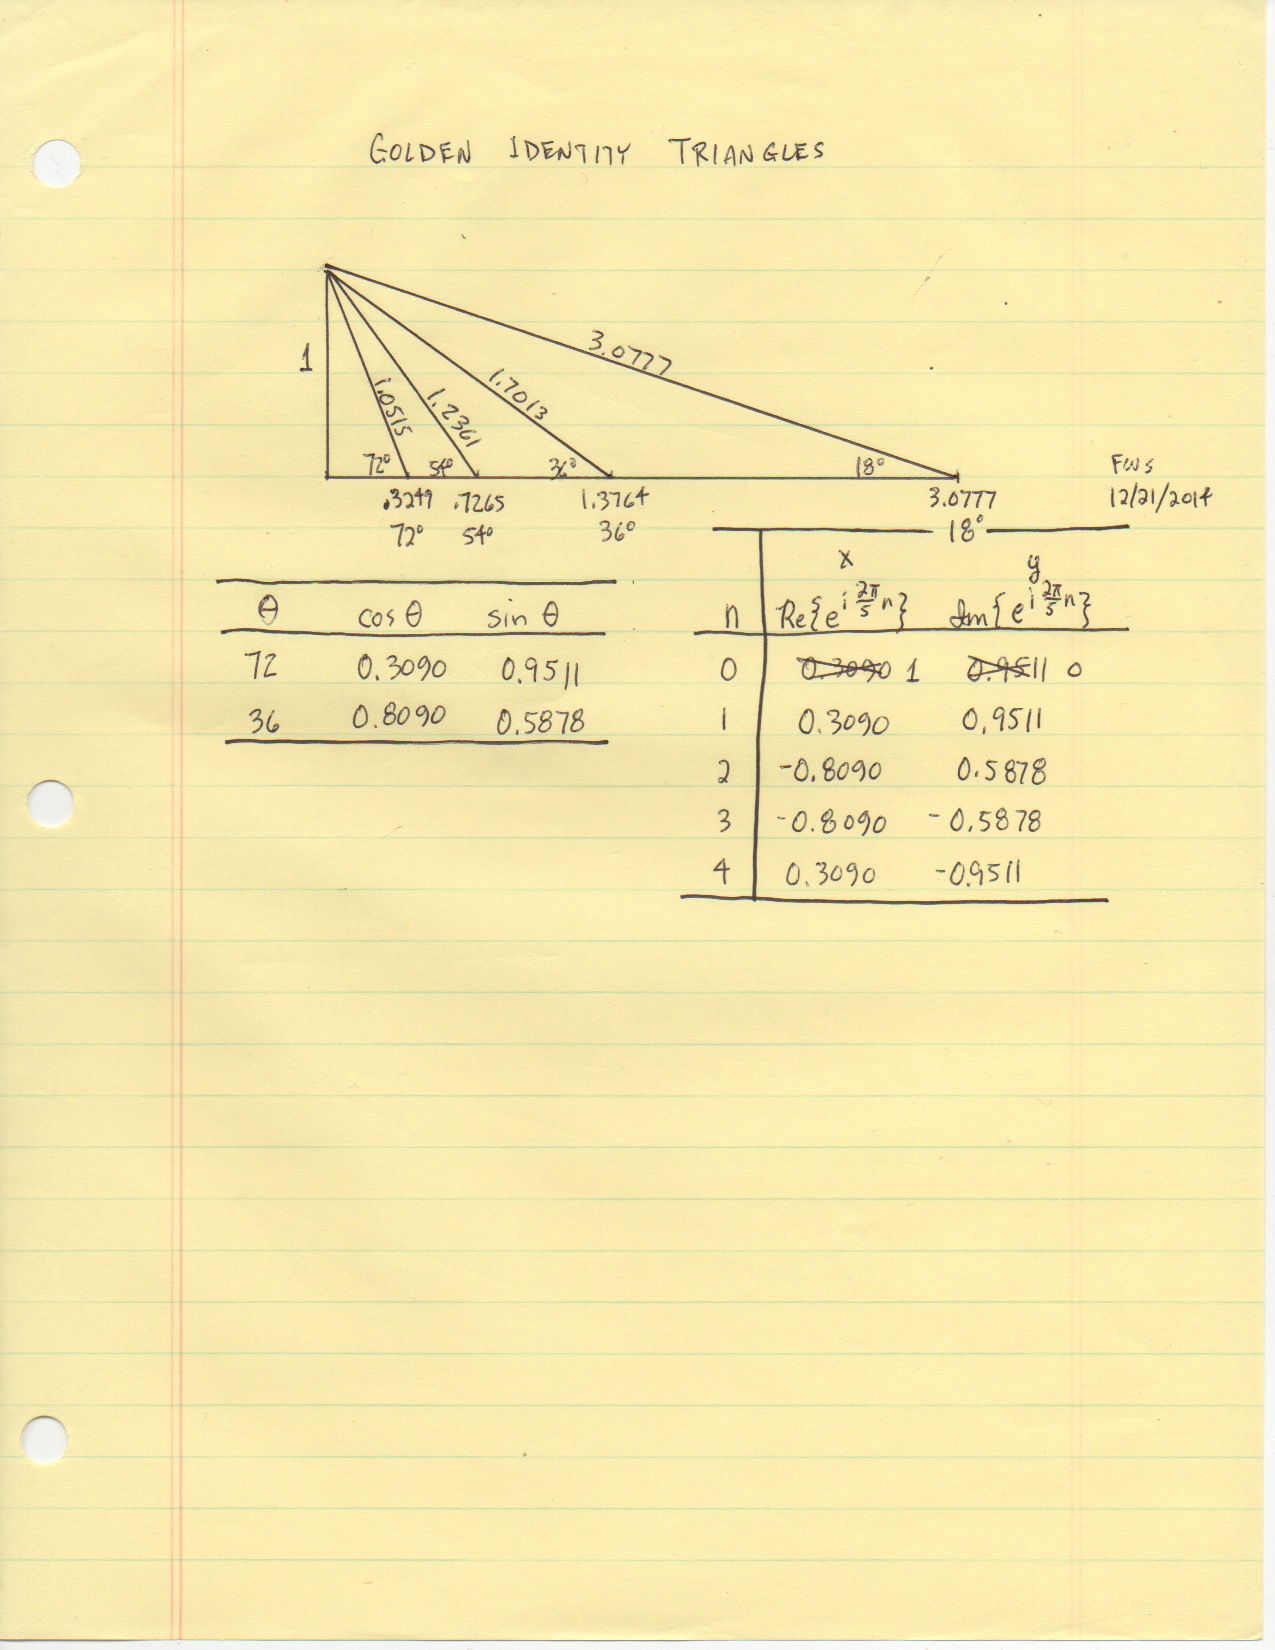 GOLDEN IDENTITY TRIANGLES
1
3.0777
1.0515
1.2361
1.7013
72° 54° 36° 18°
.3249 .7265 1.3764 3.0777
72° 54° 36° 18°
FWS
12/21/2014
θ cos θ sin θ
72 0.3090 0.9511
36 0.8090 0.5878
x y
n Re{e^{i 2π/5 n}} Im{e^{i 2π/5 n}}
0 0.3090 1 0.9511 0
1 0.3090 0.9511
2 -0.8090 0.5878
3 -0.8090 -0.5878
4 0.3090 -0.9511